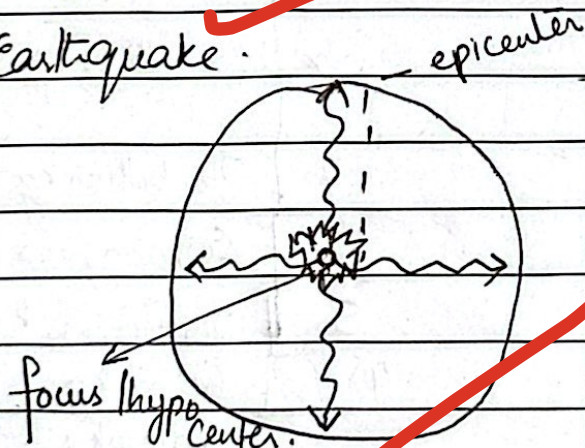 Earthquake.
epicenter
focus/hypo
center.